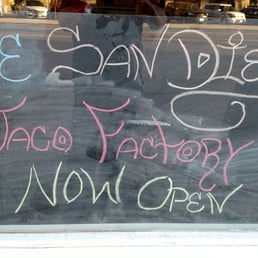 E SAN DIE
TACO FACTORY
NOW OPEN